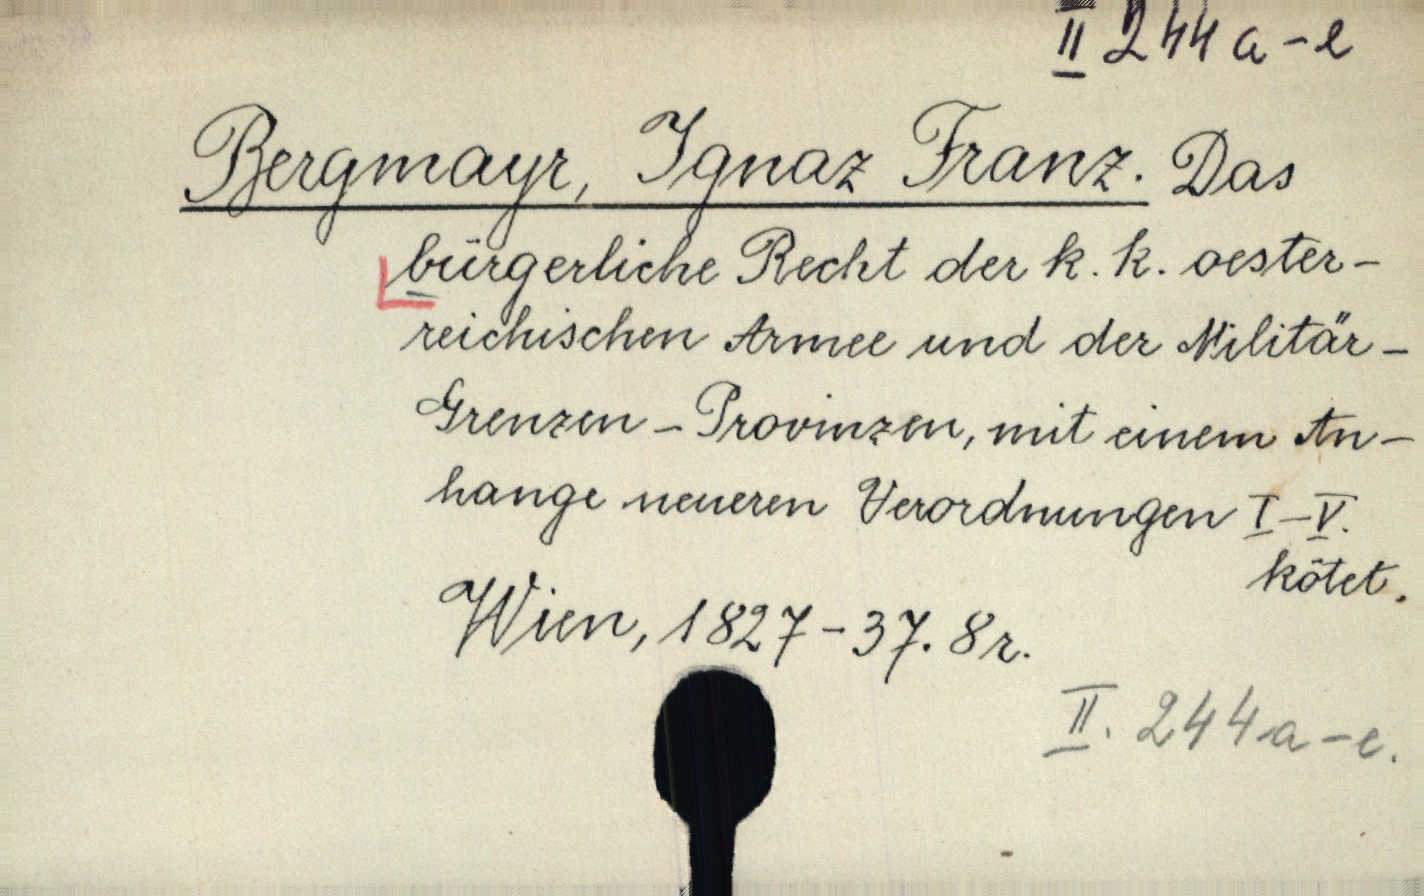 II 244 a-e
Bergmayr, Ignaz Franz. Das
bürgerliche Recht der k. k. oester-
reichischen Armee und der Militär-
Grenzen-Provinzen, mit einem An-
hange neueren Verordnungen I-V.
kötet.
Wien, 1827-37. 8r.
II. 244 a-e.